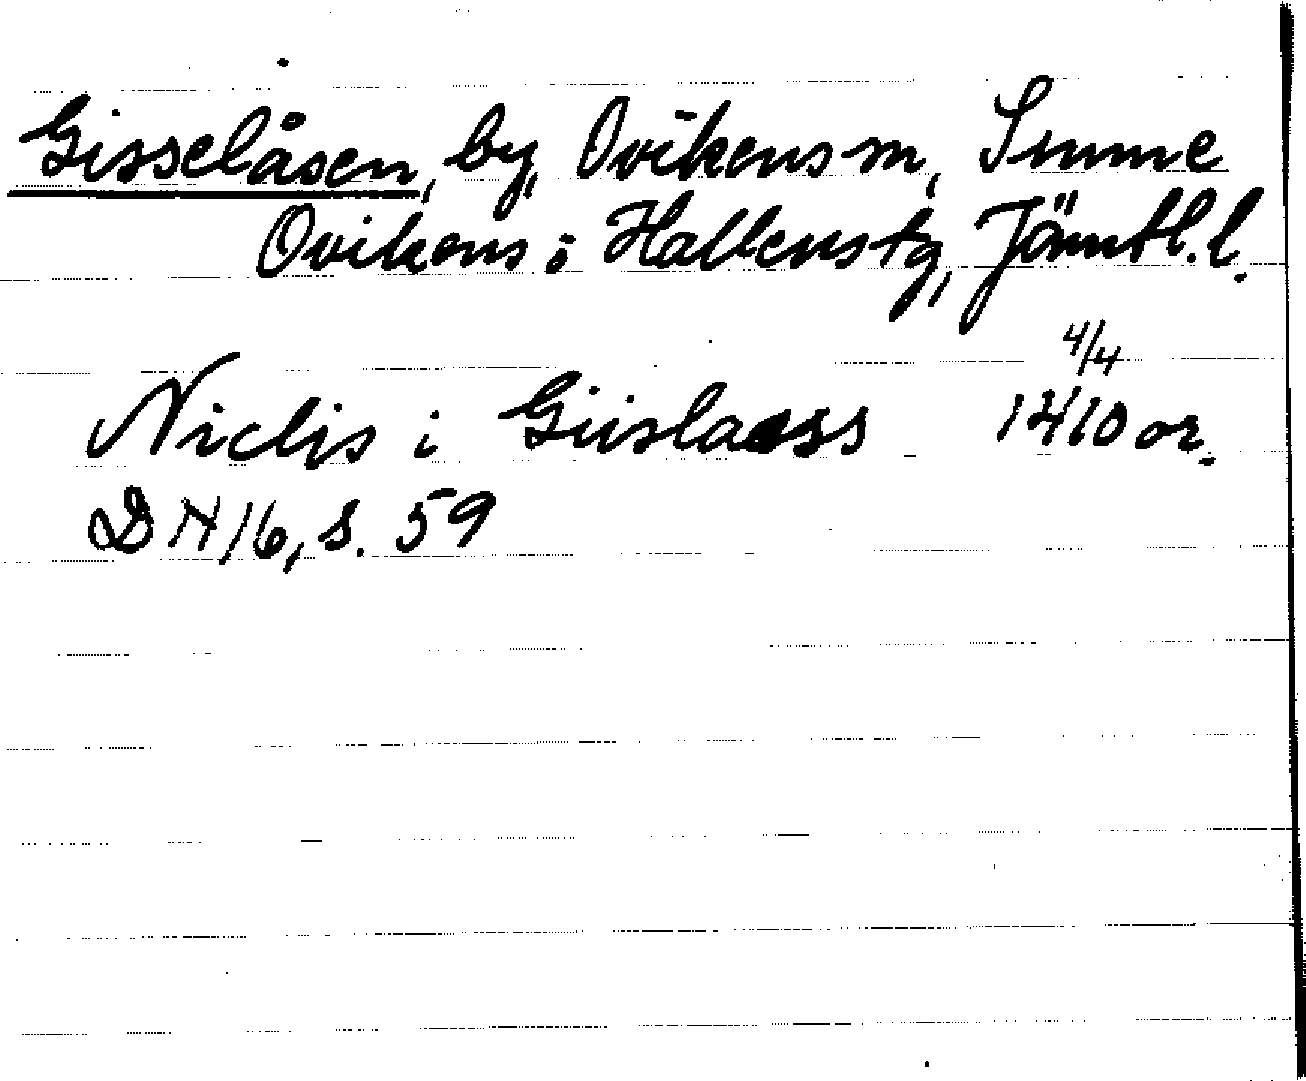 Gisselåsen, by, Ovikens sn, Sunne
Ovikens o Hallens tg, Jämtl. l.
4/4
Niclis i Giislaass 1410 or.
DN 16, s. 59